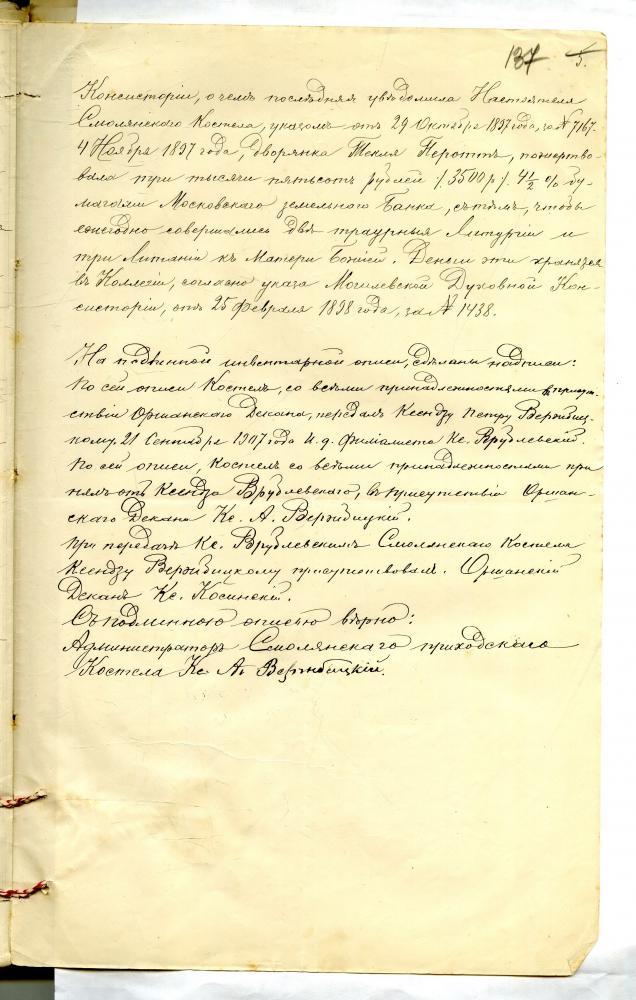 137 5.
Консисторіи, о чемъ послѣдняя увѣдомила Настоятеля
Смолянскаго Костела, указомъ отъ 29 Октября 1897 года, за № 7167.
4 Ноября 1897 года, дворянка Текля Пероттъ, пожертво-
вала три тысячи пятьсотъ рублей /. 3500 р /. 4½ % бу-
магами Московскаго земельнаго Банка, съ тѣмъ, чтобы
ежегодно совершались двѣ траурныя Литургіи и
три Литаніи къ Матери Божіей. Деньги эти хранятся
въ Коллегіи, согласно указа Могилевской Духовной Кон-
систоріи, отъ 25 Февраля 1898 года, за № 1438.
На подлинной инвентарной описи, сдѣланы надписи:
По сей описи Костелъ, со всѣми принадлежностями въ присут-
ствіи Оршанскаго Декана, передалъ Ксендзу Петру Вержбиц-
кому. 21 Сентября 1907 года И. д. филіалиста Кс. Врублевскій.
По сей описи, костелъ со всѣми принадлежностями при
нялъ отъ Ксендза Врублевскаго, въ присутствіи Оршан-
скаго Декана Кс. А. Вержбицкій.
При передачѣ Кс. Врублевскимъ Смолянскаго Костела
Ксендзу Вержбицкому присутствовалъ. Оршанскій
Деканъ Кс. Косинскій.
Съ подлинною описью вѣрно:
Администраторъ Смолянскаго приходскаго
Костела Кс А. Вержбицкій.